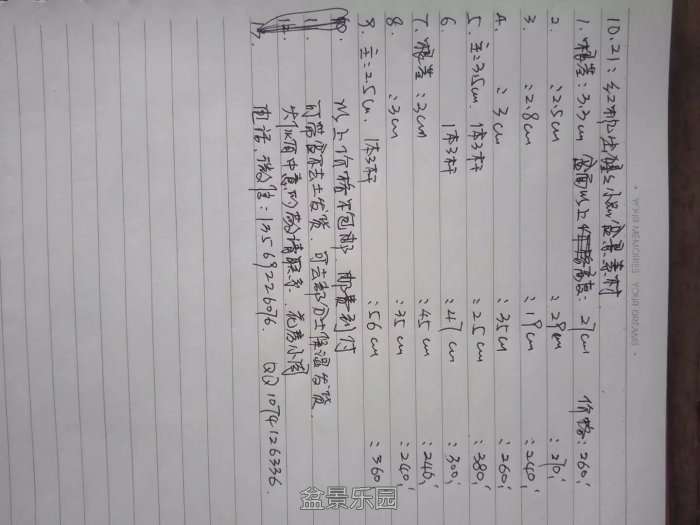 YOUR MEMORIES YOUR DREAMS
10.21:红粉小品盆景素材
1. 根茎:3.3cm 盆面以上高度:27cm 价格:260;
2. :2.5cm :28cm :270;
3. :2.8cm :19cm :240;
4. :3cm :35cm :260;
5. 主:3.5cm. 1本3杆 :25cm :380;
6. 1本3杆 :47cm :300;
7. 根茎:3cm :45cm :240;
8. :3cm :35cm :240;
9. 主:2.5cm. 1本3杆 :56cm :360
以上价格不包邮 邮费到付
可带盆不去土发货. 可去部分土保湿发货.
请联系:花房小周
电话.微信:13569226076. QQ1074126336.
盆景乐园